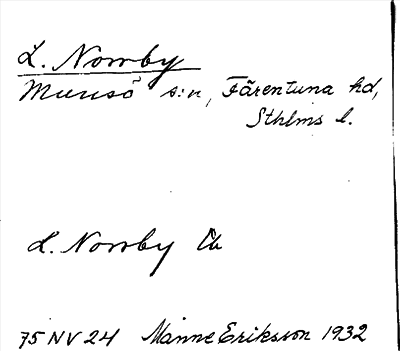 L. Norrby
Munsö s:n, Färentuna hd,
Sthlms l.
L. Norrby
75 NV 24 Manne Eriksson 1932